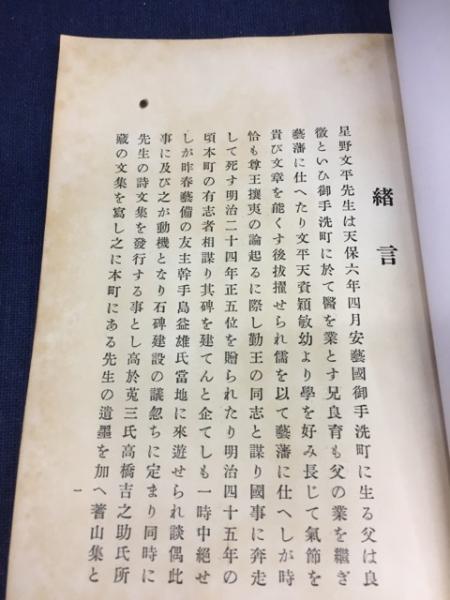 緒言
星野文平先生は天保六年四月安藝國御手洗町に生る父は良
徵といひ御手洗町に於て醫を業とす兄良育も父の業を繼ぎ
藝藩に仕へたり文平天資穎敏幼より學を好み長じて氣節を
貴び文章を能くす後拔擢せられ儒を以て藝藩に仕へしが時
恰も尊王攘夷の論起るに際し勤王の同志と謀り國事に奔走
して死す明治二十四年正五位を贈られたり明治四十五年の
頃本町の有志者相謀り其碑を建てんと企てしも一時中絕せ
しが昨春藝備の友主幹手島益雄氏當地に來遊せられ談偶此
事に及び之が動機となり石碑建設の議忽ちに定まり同時に
先生の詩文集を發行する事とし高於菟三氏高橋吉之助氏所
藏の文集を寫し之に本町にある先生の遺墨を加へ著山集と
一